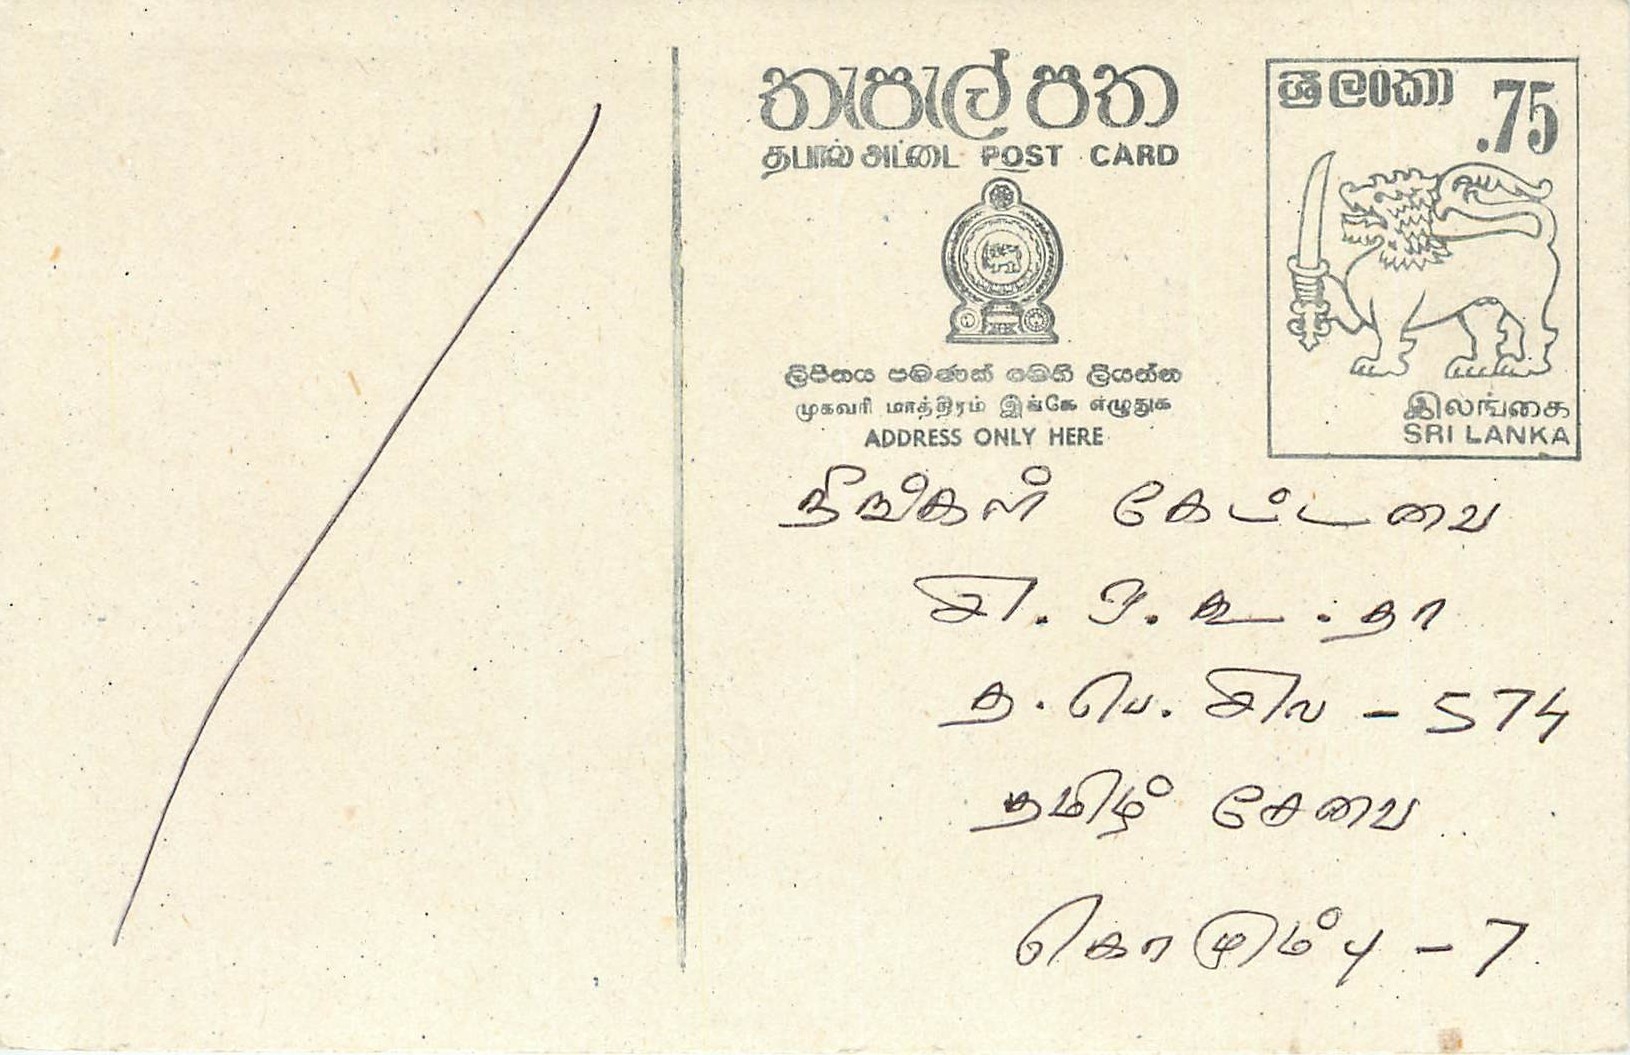 තැපැල් පත
தபால் அட்டை POST CARD
ලිපිනය පමණක් මෙහි ලියන්න
முகவரி மாத்திரம் இங்கே எழுதுக
ADDRESS ONLY HERE
ශ්‍රී ලංකා
.75
இலங்கை
SRI LANKA
நீங்கள் கேட்டவை
சி. ஒ. கூ . தா
த. பெ. இல - 574
தமிழ் சேவை
கொழும்பு - 7